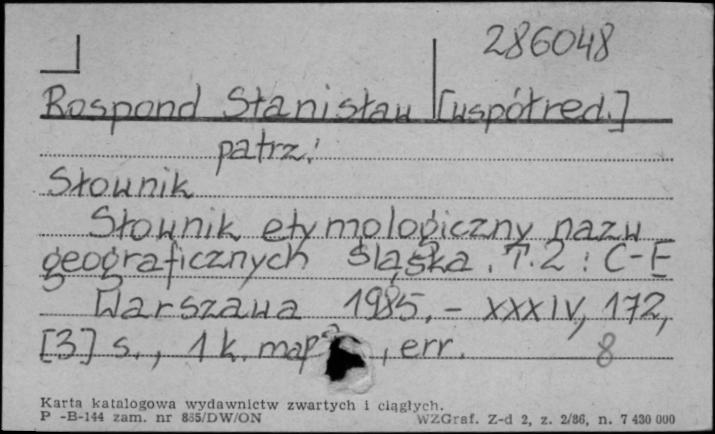 286048
Rospond Stanisław [współred.]
patrz:
Słownik
Słownik etymologiczny nazw
geograficznych Śląska. T. 2 : C-E
Warszawa 1985. - XXXIV, 172,
[3] s., 1 k. map , err. 8
Karta katalogowa wydawnictw zwartych i ciągłych.
P -B-144 zam. nr 835/DW/ON WZGraf. Z-d 2, z. 2/86, n. 7 430 000